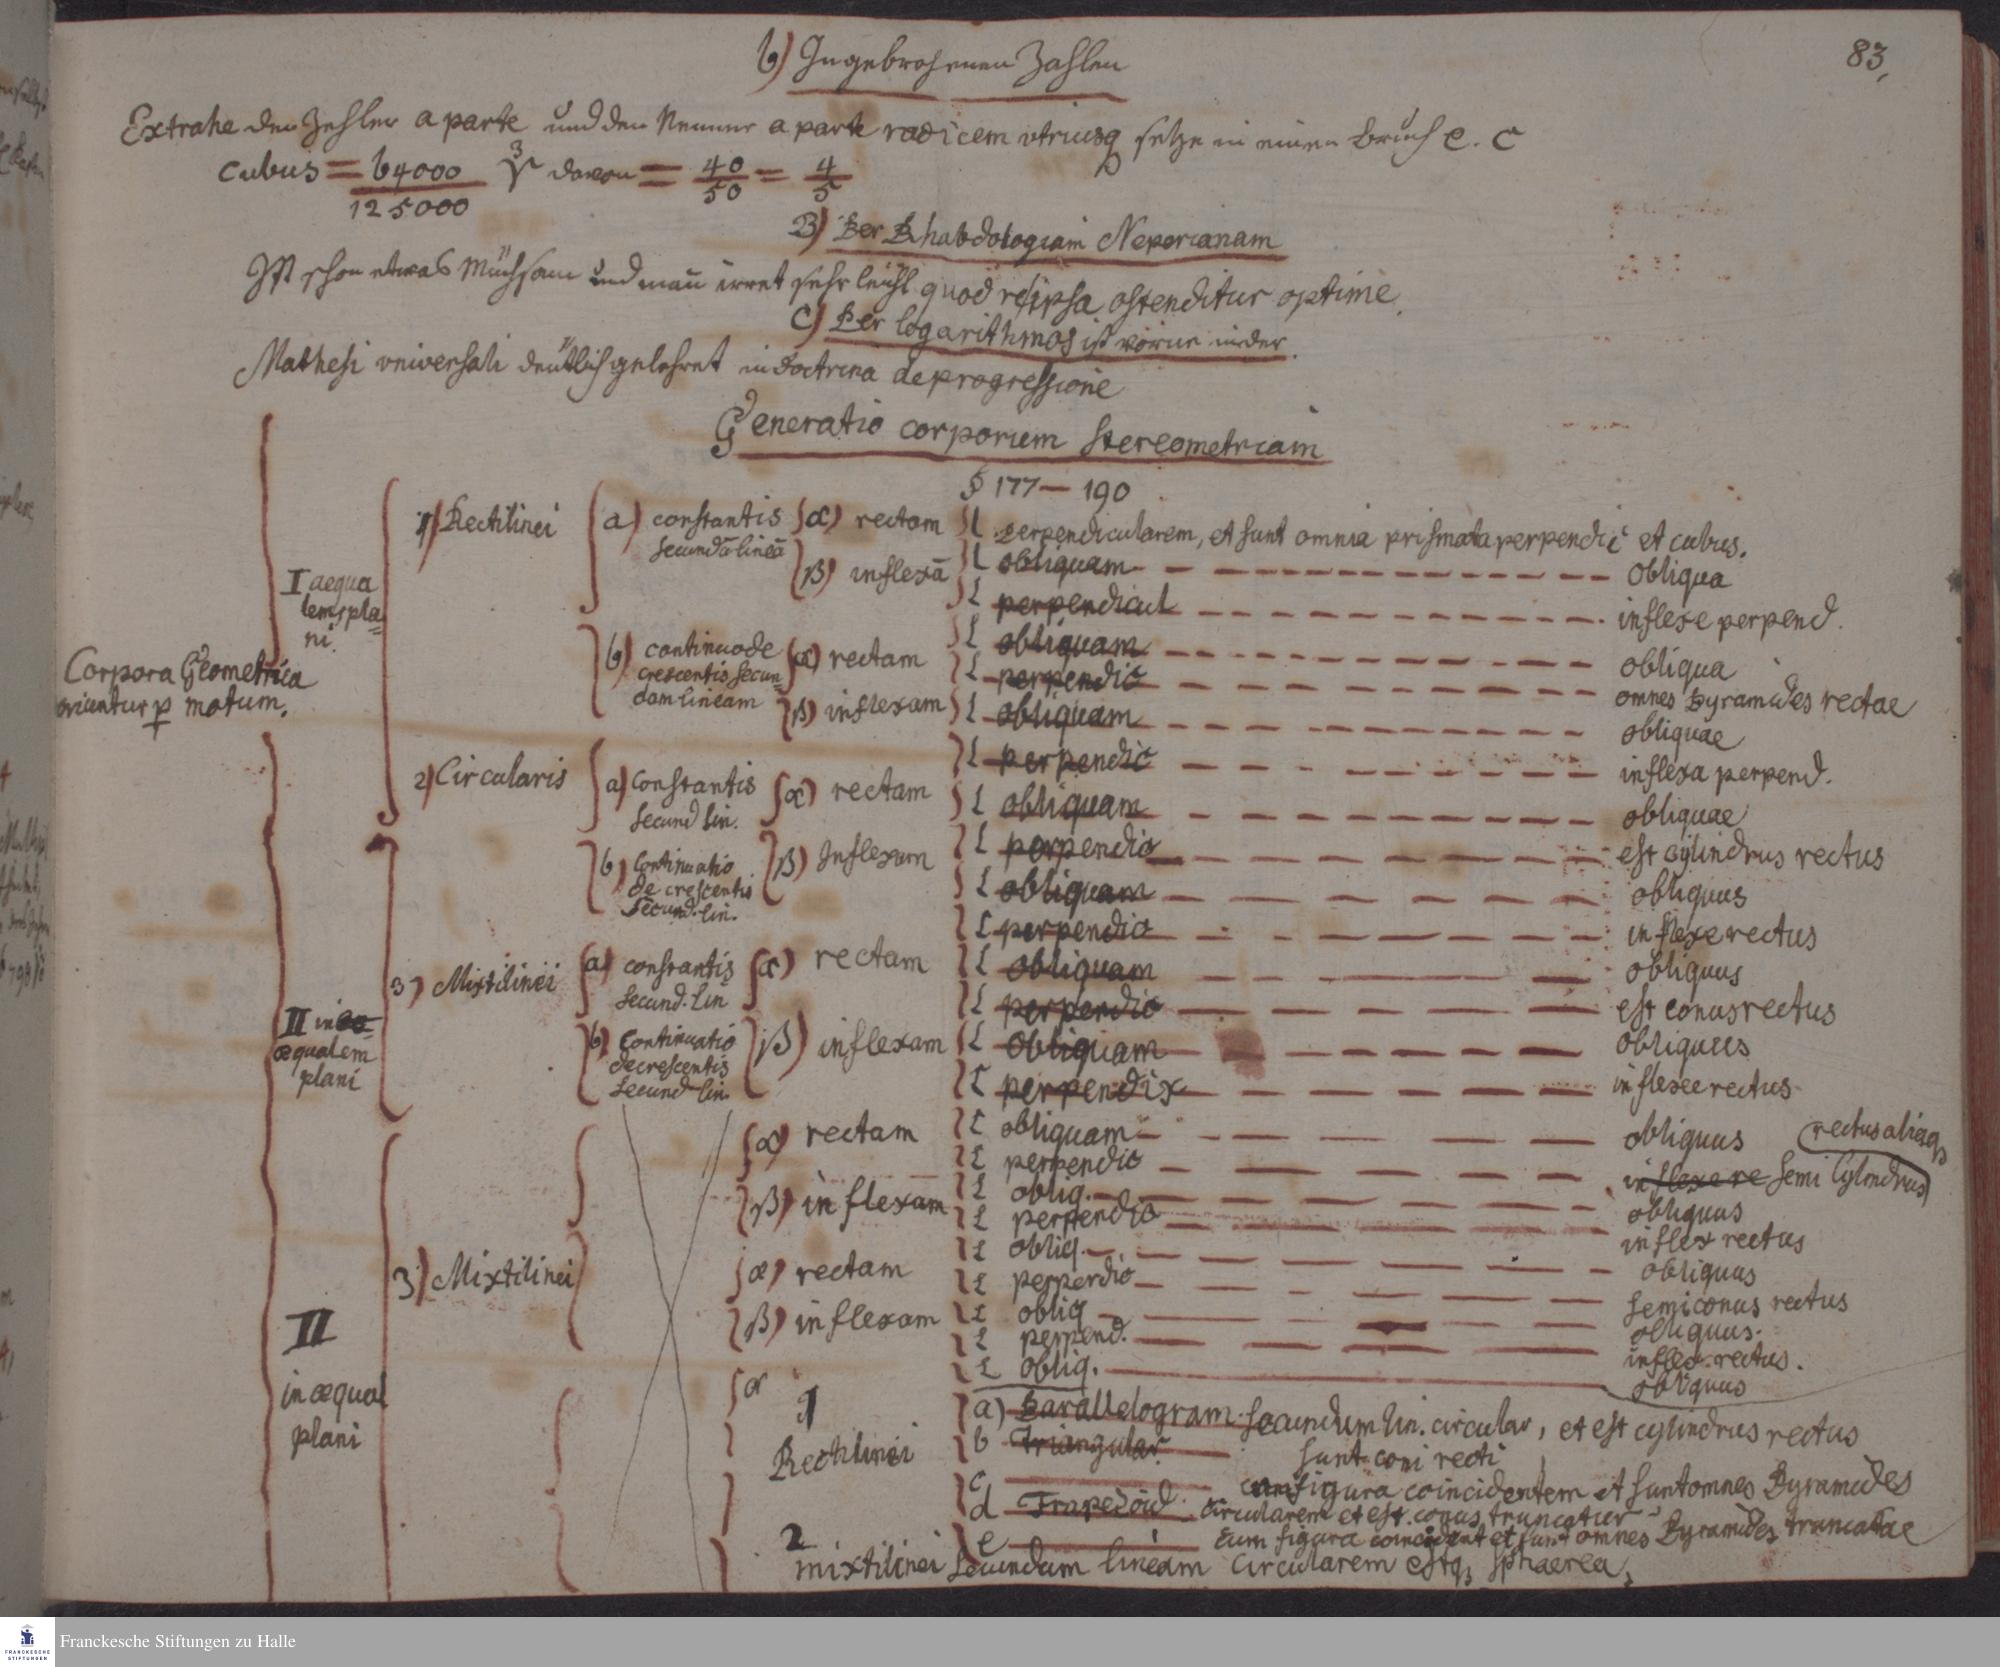 b) In gebrochenen Zahlen
83,
Extrahe den Zehler a parte und den Nenner a parte radicem utriusq setze in einen Bruch e. c
cubus = 64000 ∛ davon = 40 = 4
125000 50 5
B) Per Rhabdologiam Neperianam
Ist schon etwas Mühsam und man irret sehr leicht quod reipsa ostenditur optime.
C) Per logarithmos ist vorne in der
Mathesi universali deutlich gelehret in doctrina de progressione
Generatio corporum stereometricam
§ 177 — 190
Corpora Geometrica
oriuntur p motum.
I aequa
lems pla=
ni.
1) Rectilinei
a) constantis
secundā lineā
α) rectam
β) inflexā
b) continuo de
crescentis secun=
dam lineam
α) rectam
β) inflexam
2) Circularis
a) Constantis
secund lin.
α) rectam
b) Continuatio
decrescentis
secund. lin.
β) Inflexam
II in eo=
æqualem
plani
3) Mixtilinei
a) constantis
secund. lin
α) rectam
b) Continuatio
decrescentis
secund lin.
β) inflexam
II
in æqual
plani
3) Mixtilinei
α) rectam
β) inflexam
α) rectam
β) inflexam
α
1
Rectilinei
perpendicularem, et sunt omnia prismata perpendic et cubus.
obliquam obliqua
perpendicul inflexe perpend.
obliquam obliqua
perpendic omnes Pyramides rectae
obliquam obliquae
perpendic inflexa perpend.
obliquam obliquae
perpendic est cylindrus rectus
obliquam obliquus
perpendic inflexe rectus
obliquam obliquus
perpendic est conus rectus
obliquam obliquus
perpendix inflexe rectus
obliquam obliquus
rectus aliq
perpendic inflexe re semi Cylindrus
obliq. obliquus
perpendic inflex rectus
obliq. obliquus
perpendic semiconus rectus
obliq obliquus.
perpend. inflex. rectus.
obliq. obliquus
a) Parallelogram. secundum lin. circular, et est cylindrus rectus
b Triangular. sunt coni recti
c figura coincidentem et sunt omnes Pyramides
d Trapezoid. circularem et est conus truncatus
e cum figura coincident et sunt omnes Pyramides truncatae
2
mixtilinei secundum lineam circularem estq sphaerea,
Franckesche Stiftungen zu Halle
FRANCKESCHE
STIFTUNGEN